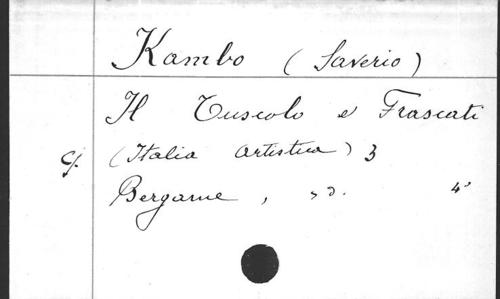 Kambo (Saverio)
Il Tuscolo e Frascati
(Italia Artistica) 3
Bergame, s.d. 4°